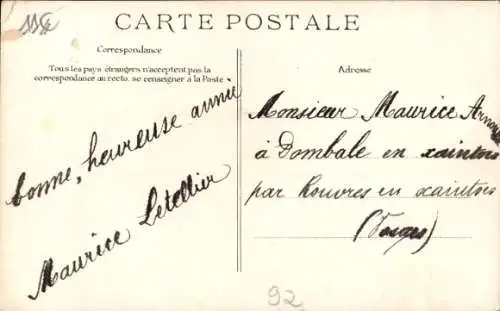 CARTE POSTALE
Correspondance
Tous les pays étrangers n'acceptent pas la
correspondance au recto, se renseigner à la Poste
bonne, heureuse année
Maurice Letellier
Adresse
Monsieur Maurice
à Dombale en xaintois
par houvres en xaintois
(Vosges)
92